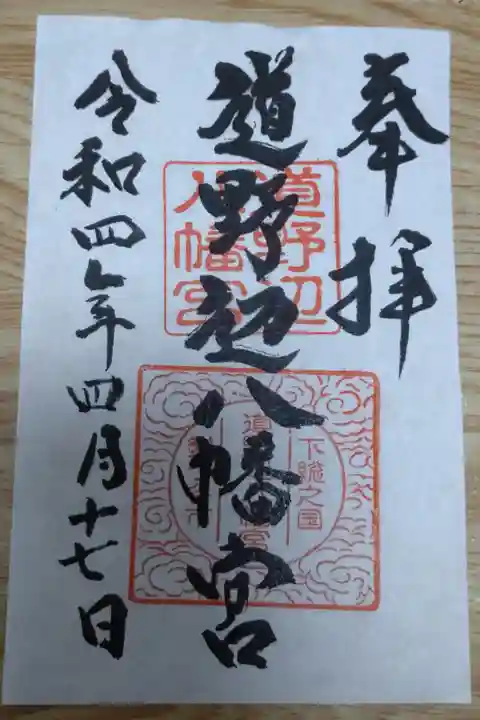 奉拝
道野辺八幡宮
令和四年四月十七日
道野辺
八幡宮
下総之国